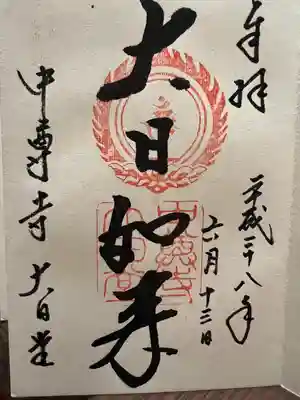 奉拝
平成二十八年
六月十三日
大日如来
中尊寺 大日堂